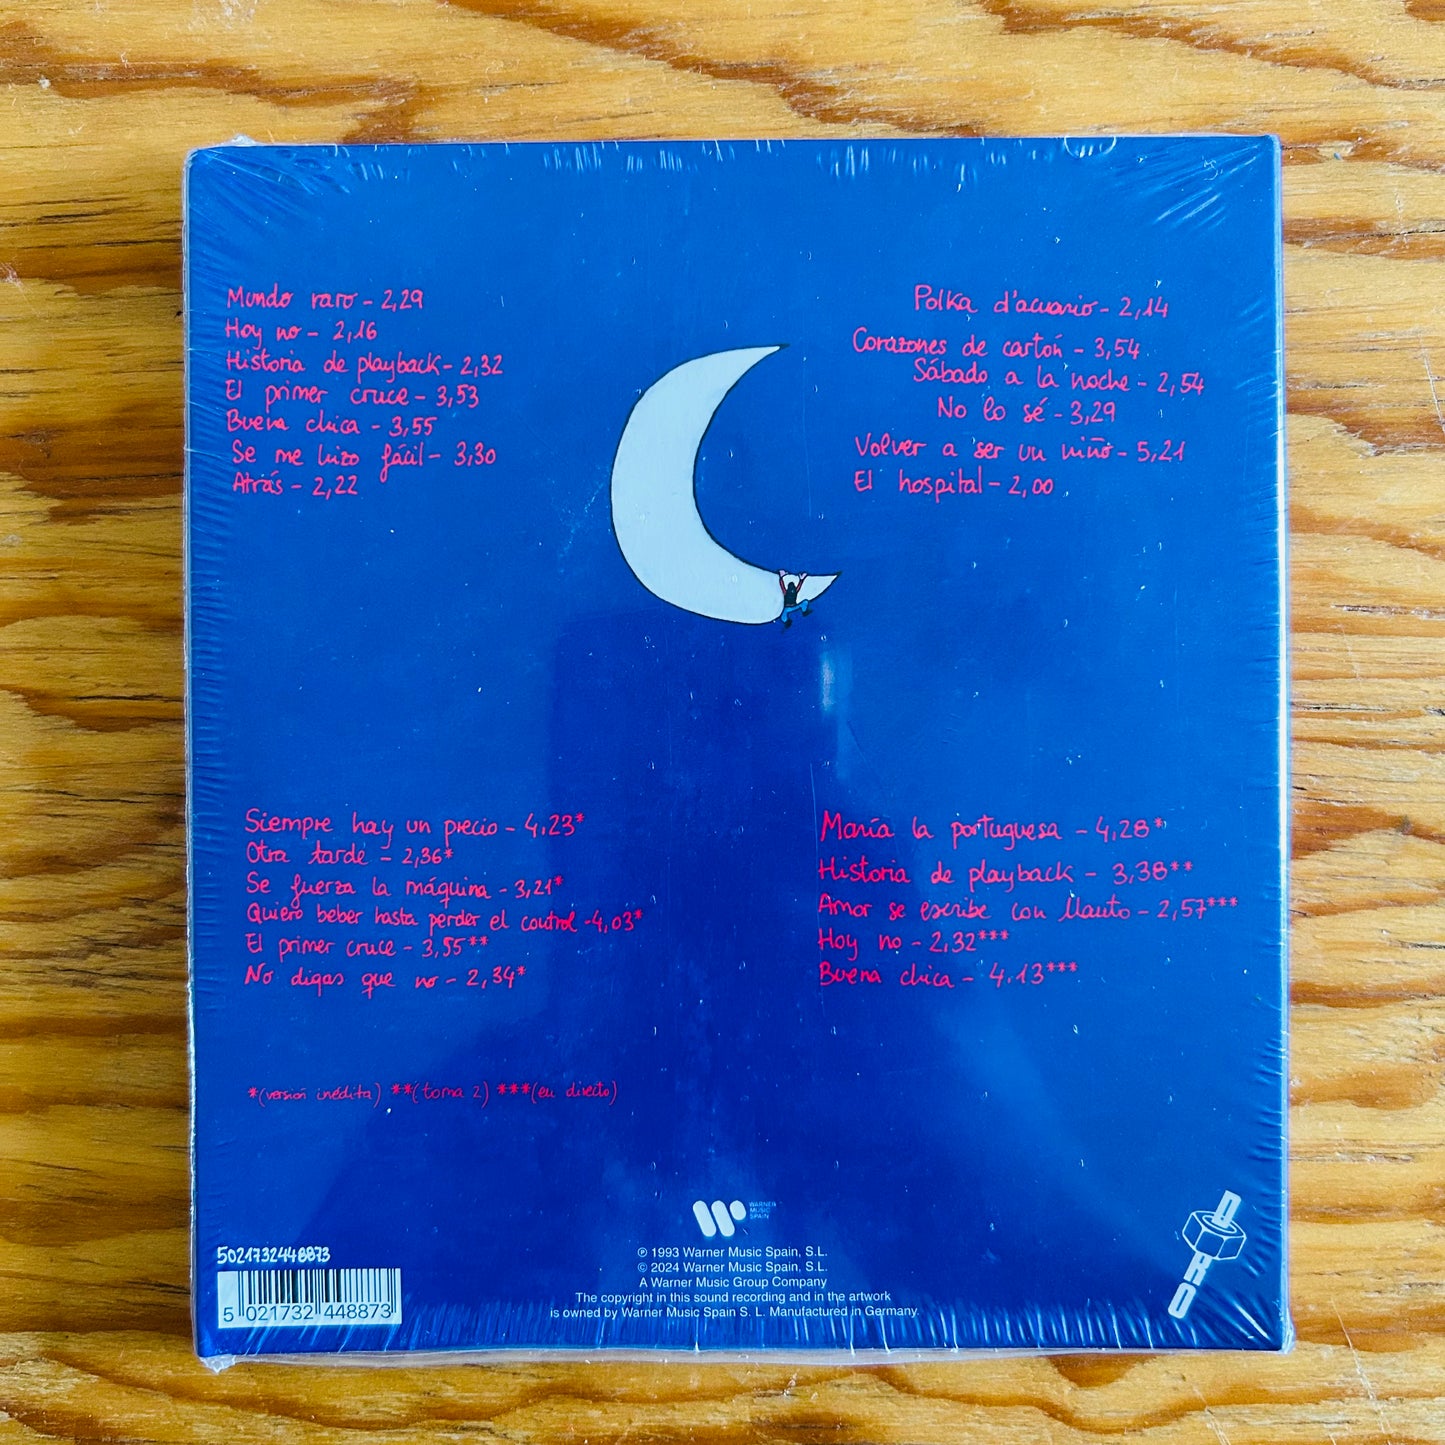 Mundo raro - 2,29
Hoy no - 2,16
Historia de playback - 2,32
El primer cruce - 3,53
Buena chica - 3,55
Se me hizo fácil - 3,30
Atrás - 2,22
Polka d'acuario - 2,14
Corazones de cartón - 3,54
Sábado a la noche - 2,54
No lo sé - 3,29
Volver a ser un niño - 5,21
El hospital - 2,00
Siempre hay un precio - 4,23*
Otra tarde - 2,36*
Se fuerza la máquina - 3,21*
Quiero beber hasta perder el control - 4,03*
El primer cruce - 3,55**
No digas que no - 2,34*
María la portuguesa - 4,28*
Historia de playback - 3,38**
Amor se escribe con llanto - 2,57***
Hoy no - 2,32***
Buena chica - 4.13***
*(versión inédita) **(toma 2) ***(en directo)
WARNER
MUSIC
SPAIN
℗ 1993 Warner Music Spain, S.L.
© 2024 Warner Music Spain, S.L.
A Warner Music Group Company
The copyright in this sound recording and in the artwork
is owned by Warner Music Spain S. L. Manufactured in Germany.
5021732448873
5 021732 448873
DRO